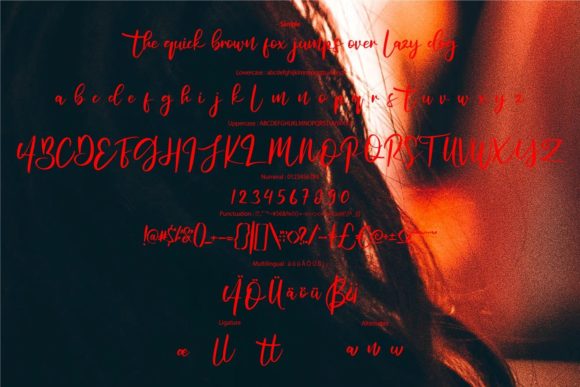 Simple
The quick brown fox jumps over Lazy dog
Lowercase : abcdefghijklmnopqrstuvwxyz
a b c d e f g h i j k L m n o p q r s t u v w x y z
Uppercase : ABCDEFGHIJKLMNOPQRSTUVWXYZ
ABCDEFGHIJKLMNOPQRSTUVWXYZ
Numeral : 0123456789
1234567890
Punctuation :
Multilingual : ä ö ü Ä Ö Ü ß
ÄÖÜäöüß
Ligature Alternates
æ ll tt a n w